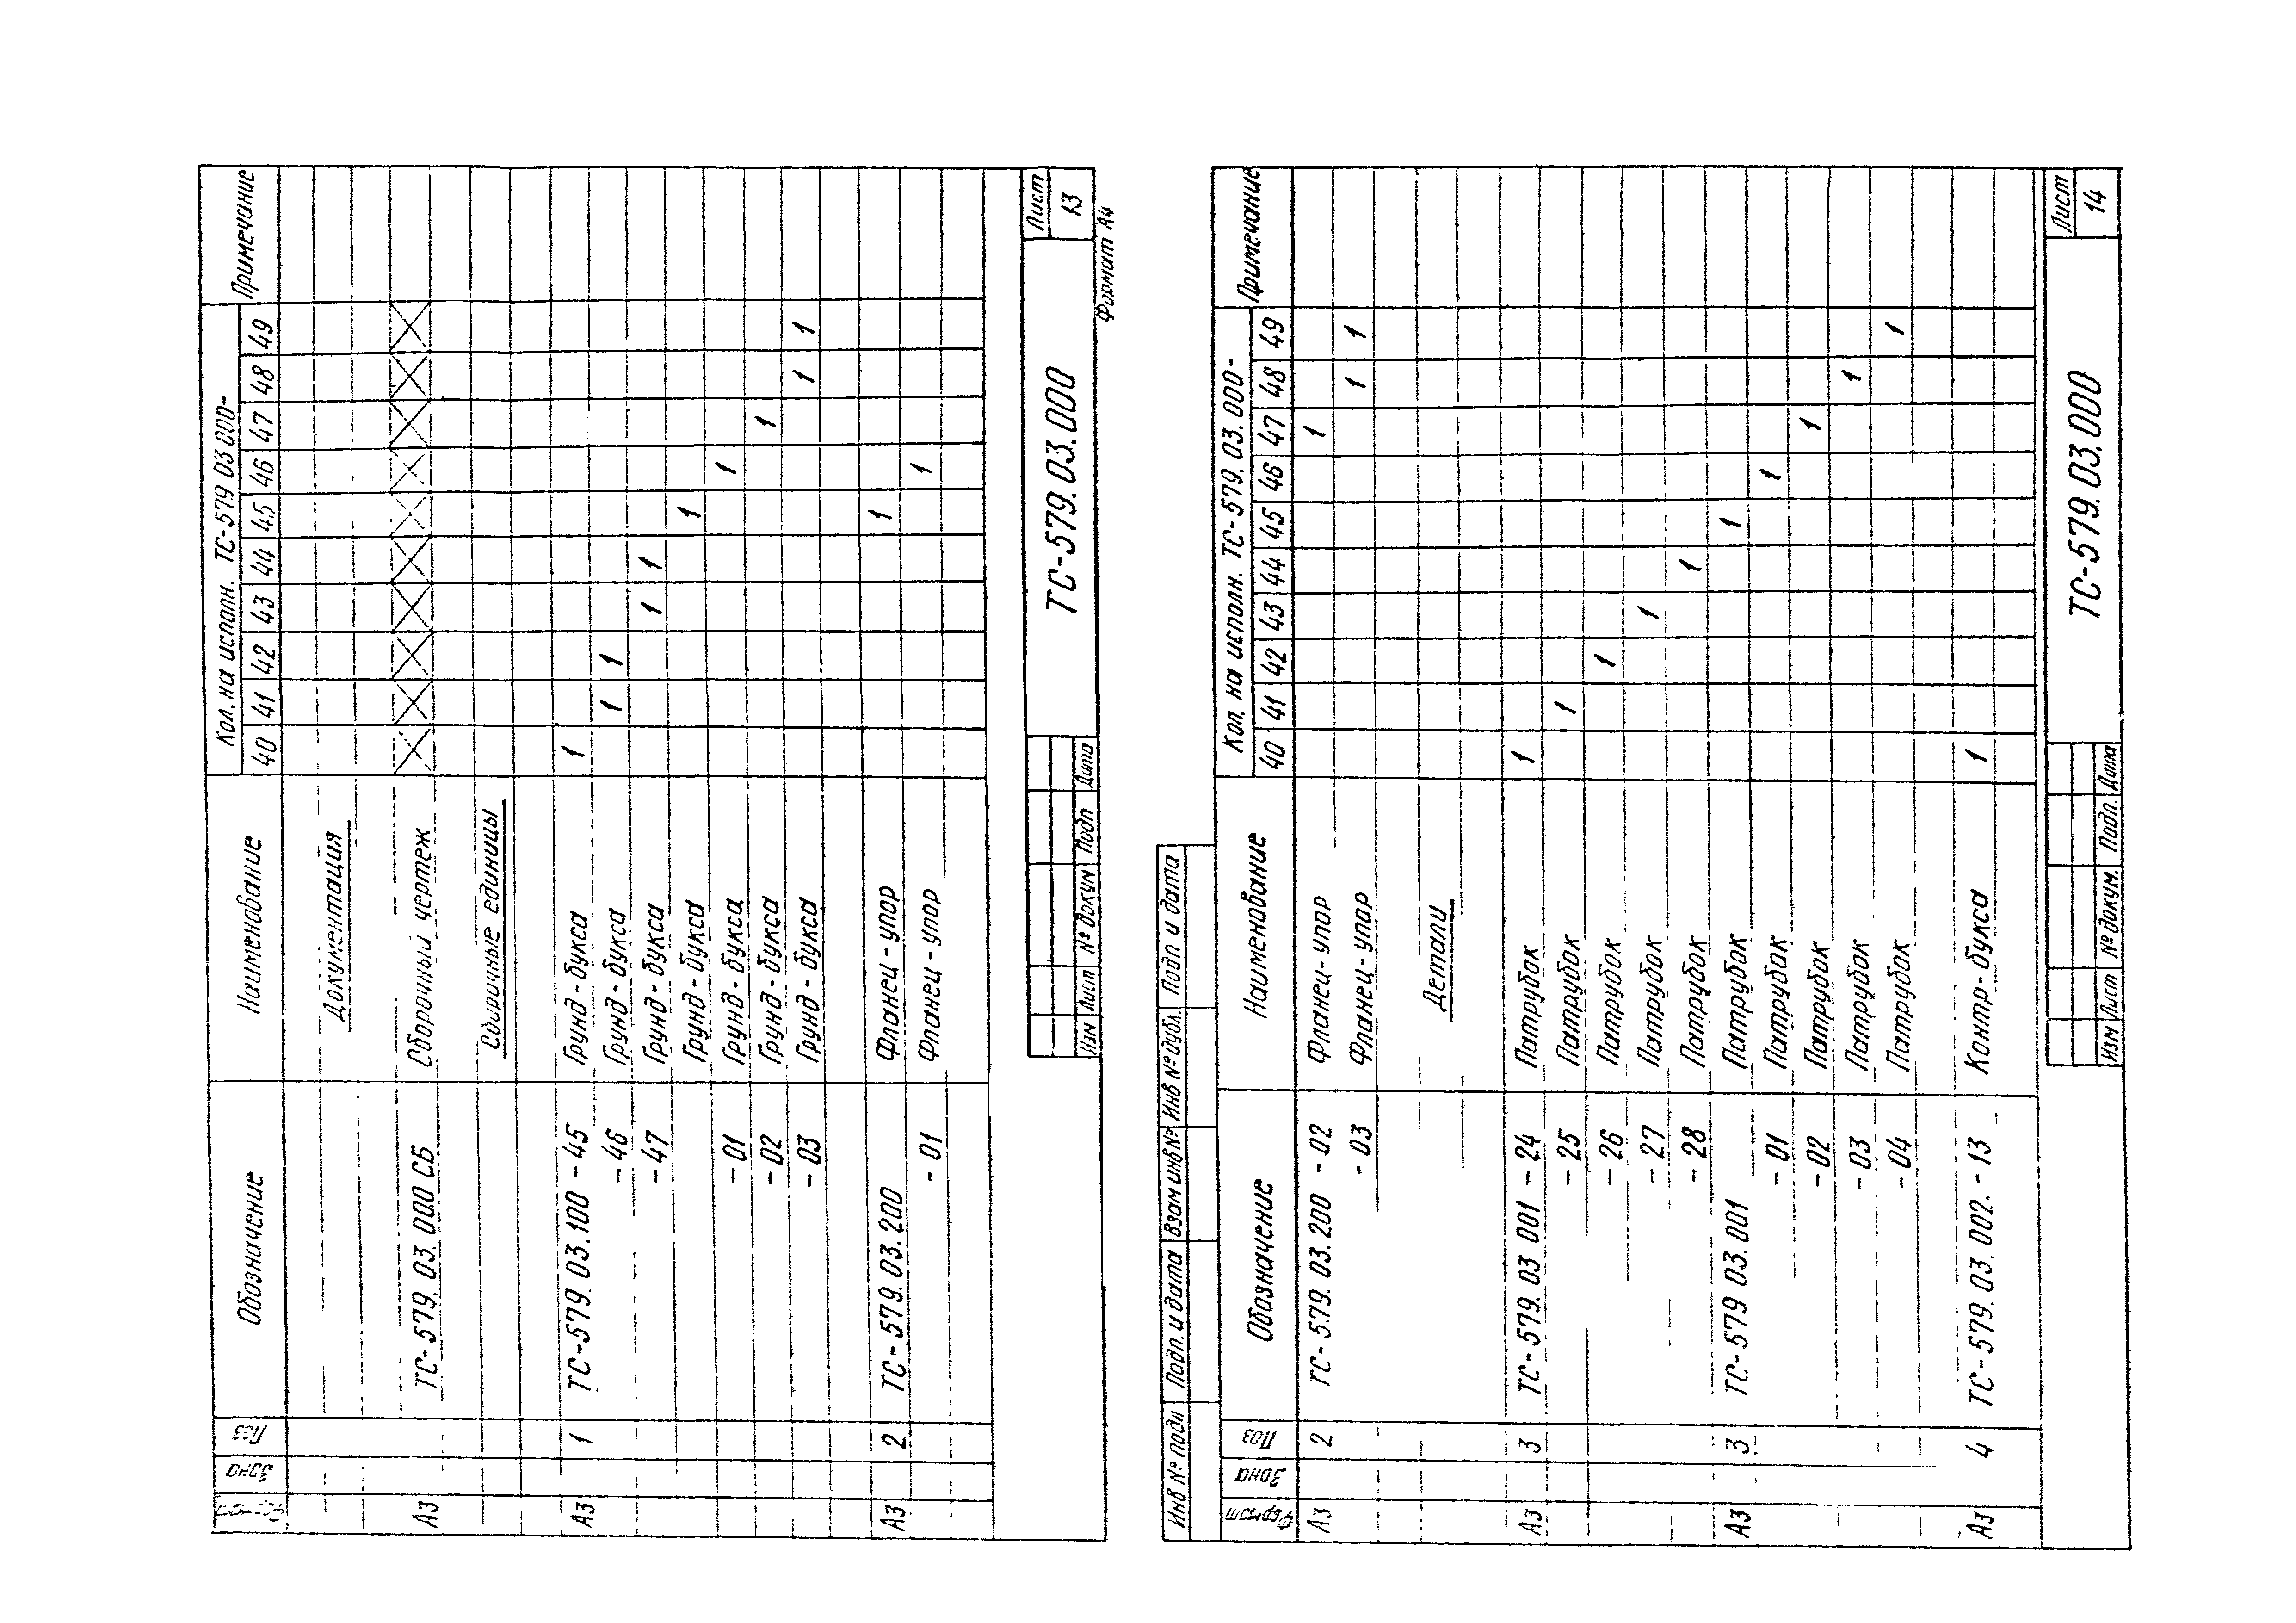 Формат Зона Поз Обозначение Наименование Кол. на исполн. ТС-579 03 000- Примечание
40 41 42 43 44 45 46 47 48 49
Документация
А3 ТС-579. 03. 000 СБ Сборочный чертеж
Сборочные единицы
А3 1 ТС-579. 03.100 -45 Грунд-букса 1
-46 Грунд-букса 1 1
-47 Грунд-букса 1 1
Грунд-букса 1
-01 Грунд-букса 1
-02 Грунд-букса 1
-03 Грунд-букса 1 1
А3 2 ТС-579.03.200 Фланец-упор 1
-01 Фланец-упор 1
Изм Лист № докум Подп Дата
ТС-579.03.000
Лист
13
Формат А4
Инв № подп Подп. и дата Взам инв № Инв № дубл. Подп и дата
Формат Зона Поз Обозначение Наименование Кол. на исполн. ТС-579. 03. 000- Примечание
40 41 42 43 44 45 46 47 48 49
А3 2 ТС-579. 03.200 -02 Фланец-упор 1
-03 Фланец-упор 1 1
Детали
А3 3 ТС-579. 03 001 -24 Патрубок 1
-25 Патрубок 1
-26 Патрубок 1
-27 Патрубок 1
-28 Патрубок 1
А3 3 ТС-579 03.001 Патрубок 1
-01 Патрубок 1
-02 Патрубок 1
-03 Патрубок 1
-04 Патрубок 1
А3 4 ТС-579. 03. 002. -13 Контр-букса 1
Изм Лист № докум. Подп. Дата
ТС-579. 03. 000
Лист
14